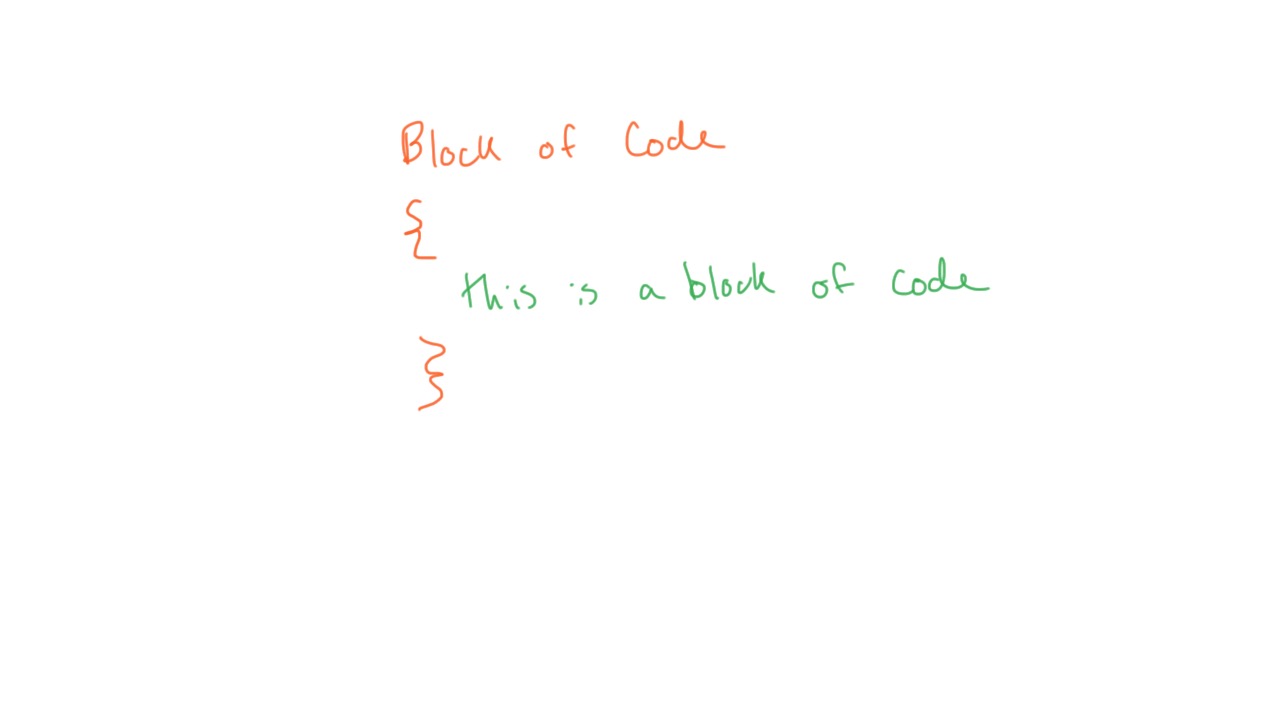 Block of Code
{
this is a block of code
}